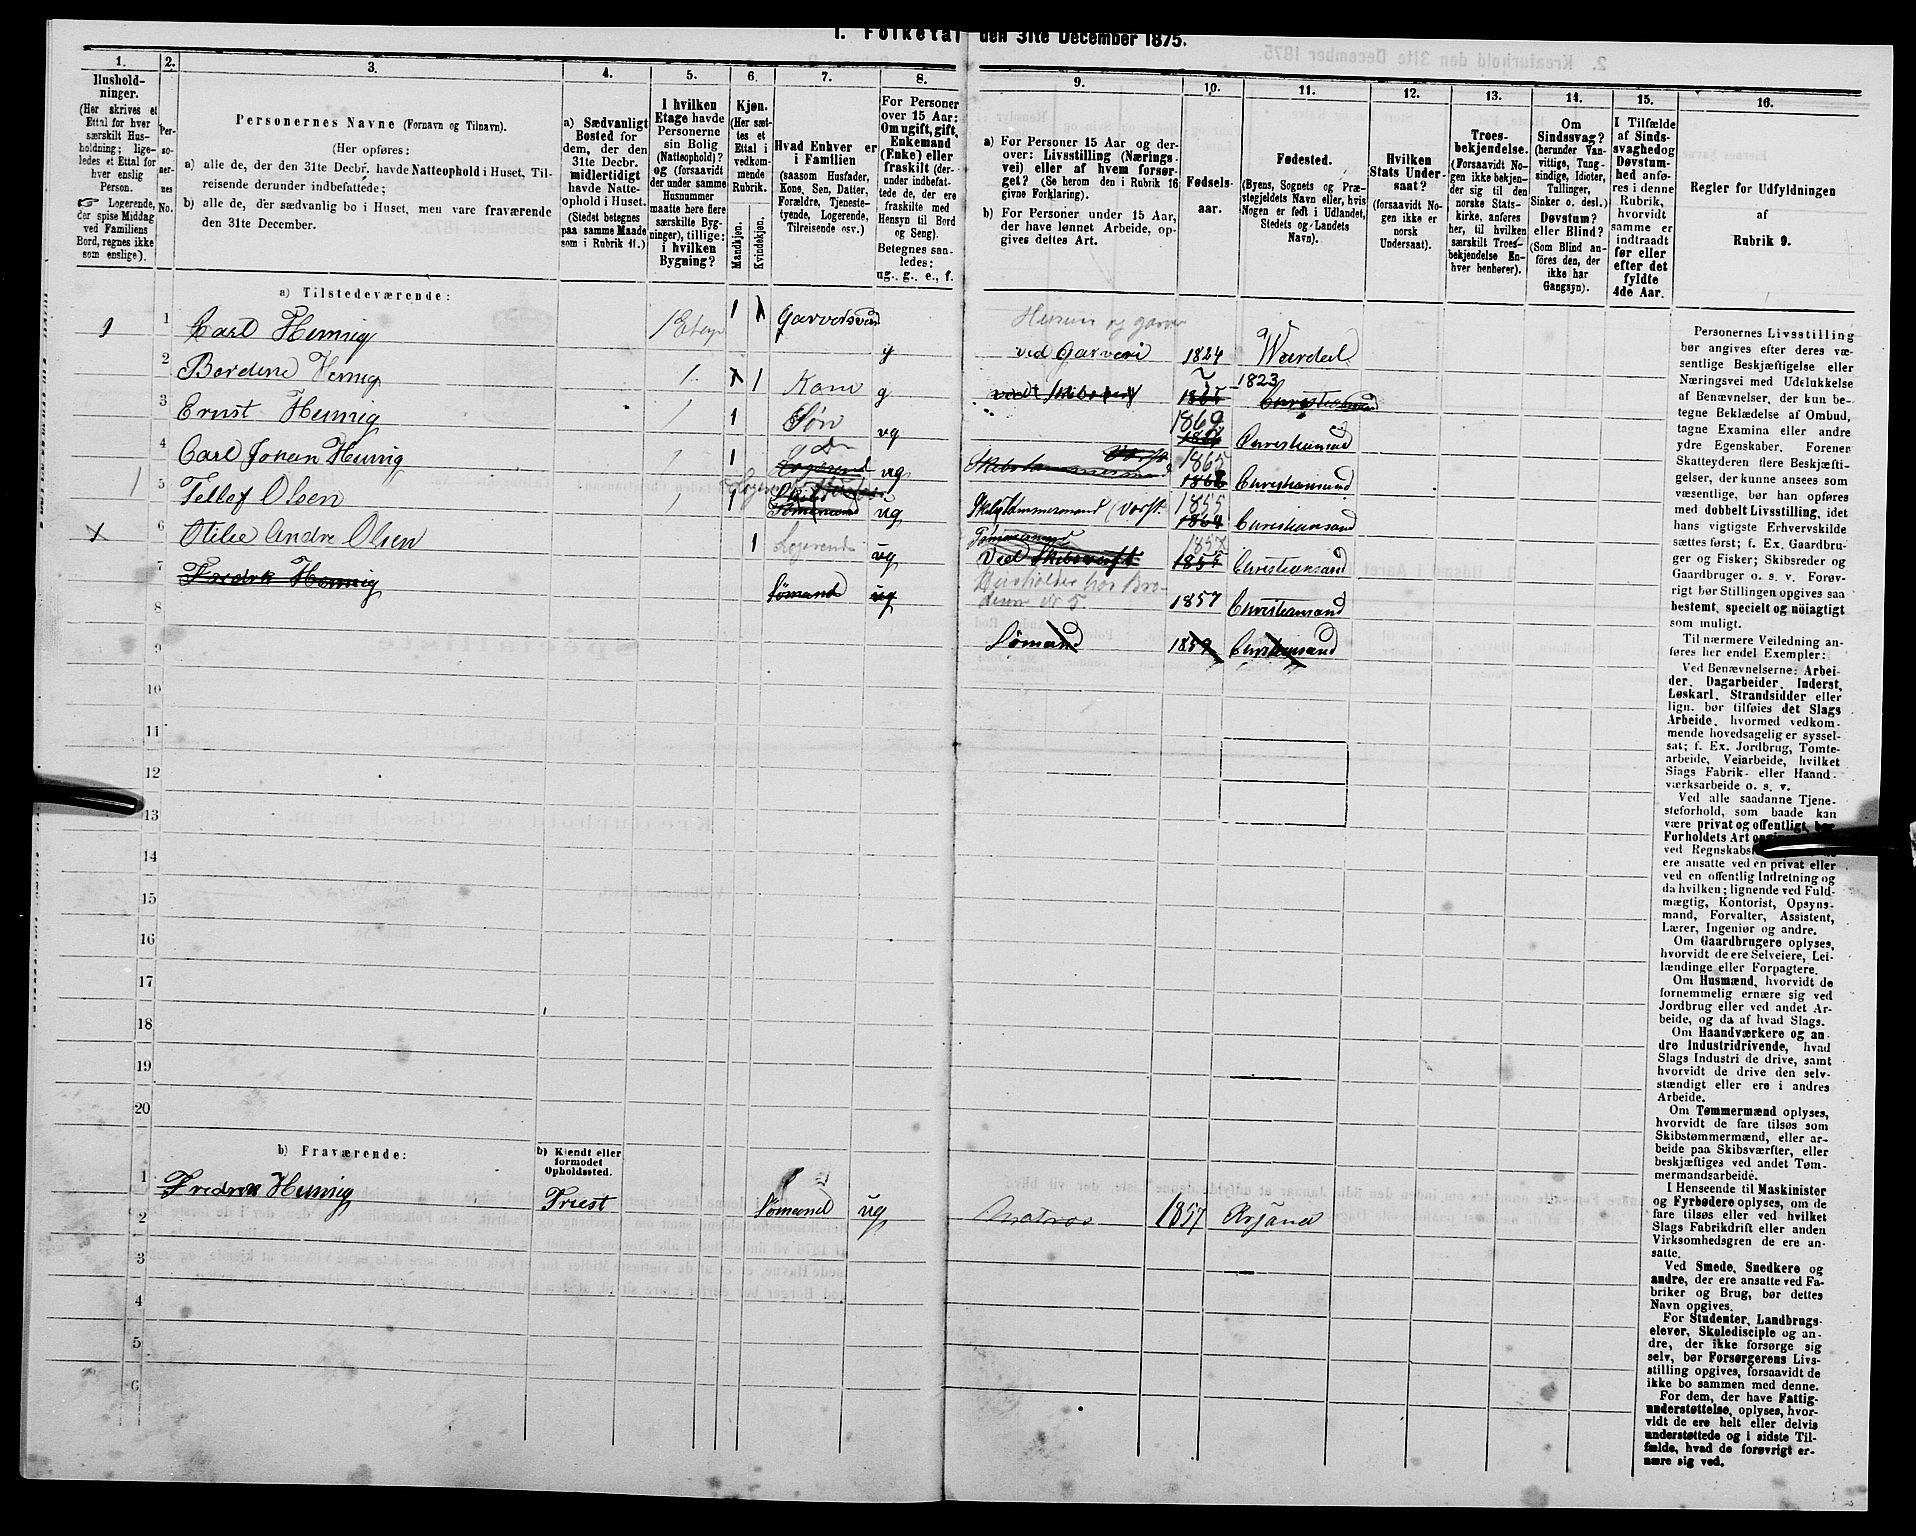 1. Folketal den 31te December 1875.
1.
Hushold-
ninger.
(Her skrives et
Ettal for hver
særskilt Hus-
holdning; lige-
ledes et Ettal for
hver enslig
Person.
☞ Logerende,
der spise Middag
ved Familiens
Bord, regnes ikke
som enslige).
2.
Per-
so-
ner-
nes
No.
3.
Personernes Navne (Fornavn og Tilnavn).
(Her opføres:
a) alle de, der den 31te Decbr. havde Natteophold i Huset, Til-
reisende derunder indbefattede;
b) alle de, der sædvanlig bo i Huset, men vare fraværende
den 31te December.
4.
a) Sædvanligt
Bosted for
dem, der den
31te Decbr.
midlertidigt
havde Natte-
ophold i Huset.
(Stedet betegnes
paa samme Maade
som i Rubrik 11.)
5.
I hvilken
Etage havde
Personerne
sin Bolig
(Natteophold)?
og (forsaavidt
der under samme
Husnummer
maatte høre flere
særskilte Byg-
ninger), tillige:
i hvilken
Bygning?
6.
Kjøn.
(Her sæt-
tes et
Ettal i
vedkom-
mende
Rubrik.
Mandkjøn.
Kvindekjøn.
7.
Hvad Enhver er
i Familien
(saasom Husfader,
Kone, Søn, Datter,
Forældre, Tjeneste-
tyende, Logerende,
Tilreisende osv.)
8.
For Personer
over 15 Aar:
Om ugift, gift,
Enkemand
(Enke) eller
fraskilt (der-
under indbefat-
tede de, der ere
fraskilte med
Hensyn til Bord
og Seng).
Betegnes saa-
ledes:
ug., g., e., f.
9.
a) For Personer 15 Aar og der-
over: Livsstilling (Nærings-
vei) eller af hvem forsør-
get? (Se herom den i Rubrik 16
givne Forklaring).
b) For Personer under 15 Aar,
der have lønnet Arbeide, op-
gives dettes Art.
10.
Fødsels-
aar.
11.
Fødested.
(Byens, Sognets og Præ-
stegjeldets Navn eller, hvis
Nogen er født i Udlandet,
Stedets og Landets
Navn).
12.
Hvilken
Stats Under-
saat?
(forsaavidt No-
gen ikke er
norsk
Undersaat).
13.
Troes-
bekjendelse.
(Forsaavidt No-
gen ikke bekjen-
der sig til den
norske Stats-
kirke, anføres
her, til hvilken
særskilt Troes-
bekjendelse En-
hver henhører).
14.
Om
Sindssvag?
(herunder Van-
vittige, Tung-
sindige, Idioter,
Tullinger,
Sinker o. desl.)
Døvstum?
eller Blind?
(Som Blind an-
føres den, der
ikke har
Gangsyn).
15.
I Tilfælde
af Sinds-
svaghed og
Døvstum-
hed anføres
i denne
Rubrik,
hvorvidt
samme er
indtraadt
før eller
efter det
fyldte
4de Aar.
16.
Regler for Udfyldningen
af
Rubrik 9.
a) Tilstedeværende:
1 1 Carl Hennig 1 Etage 1 g ved Garveri 1824
2 Bordine Hennig 1 1 Kone g 1823
3 Ernst Hennig 1 1 Søn ug 1862 Christiansand
4 Carl Johan Hennig 1 1 ug 1865 Christiansand
1 5 Tellef Olsen 1 1 ug 1855 Christiansand
6 Otilie Andre Olsen 1 Logerende ug Christiansand
7 Fredrk Hennig Sømand ug 1857 Christiansand
8 Sømand Christiansand
9
10
11
12
13
14
15
16
17
18
19
20
b) Fraværende:
b) Kjendt eller
formodet
Opholdssted.
1 Fredrik Hennig Triest Sømand ug Matros 1857
2
3
4
5
6
Personernes Livsstilling
bør angives efter deres væ-
sentlige Beskjæftigelse eller
Næringsvei med Udelukkelse
af Benævnelser, der kun be-
tegne Beklædelse af Ombud,
tagne Examina eller andre
ydre Egenskaber. Forener
Skatteyderen flere Beskjæfti-
gelser, der kunne ansees som
væsentlige, bør han opføres
med dobbelt Livsstilling, idet
hans vigtigste Erhvervskilde
sættes først; f. Ex. Gaardbru-
ger og Fisker; Skibsreder og
Gaardbruger o. s. v. Forøv-
rigt bør Stillingen opgives saa
bestemt, specielt og nöiagtigt
som muligt.
Til nærmere Veiledning an-
føres her endel Exempler:
Ved Benævnelserne: Arbei-
der, Dagarbeider, Inderst,
Løskarl, Strandsidder eller
lign. bør tilføies det Slags
Arbeide, hvormed vedkom-
mende hovedsagelig er syssel-
sat; f. Ex. Jordbrug, Tomte-
arbeide, Veiarbeide, hvilket
Slags Fabrik- eller Haand-
værksarbeide o. s. v.
Ved alle saadanne Tjene-
steforhold, som baade kan
være privat og offentligt, bør
Forholdets Art
ved
ere ansatte ved en privat eller
ved en offentlig Indretning og
da hvilken; lignende ved Fuld-
mægtig, Kontorist, Opsyns-
mand, Forvalter, Assistent,
Lærer, Ingeniør og andre.
Om Gaardbrugere oplyses,
hvorvidt de ere Selveiere, Lei-
lændinge eller Forpagtere.
Om Husmænd, hvorvidt de
fornemmelig ernære sig ved
Jordbrug eller ved andet Ar-
beide, og da af hvad Slags.
Om Haandværkere og an-
dre Industridrivende, hvad
Slags Industri de drive, samt
hvorvidt de drive den selv-
stændigt eller ere i andres
Arbeide.
Om Tømmermænd oplyses,
hvorvidt de fare tilsøs som
Skibstømmermænd, eller ar-
beide paa Skibsværfter, eller
beskjæftiges ved andet Tøm-
mermandsarbeide.
I Henseende til Maskinister
og Fyrbødere oplyses, om de
fare tilsøs eller ved hvilket
Slags Fabrikdrift eller anden
Virksomhedsgren de ere an-
satte.
Ved Smede, Snedkere og
andre, der ere ansatte ved Fa-
briker og Brug, bør dettes
Navn opgives.
For Studenter, Landbrugs-
elever, Skoledisciple og an-
dre, der ikke forsørge sig
selv, bør Forsørgerens Livs-
stilling opgives, forsaavidt de
ikke bo sammen med denne.
For dem, der have Fattig-
understøttelse, oplyses, hvor-
vidt de ere helt eller delvis
understøttede og i sidste Til-
fælde, hvad de forøvrigt er-
nære sig ved.